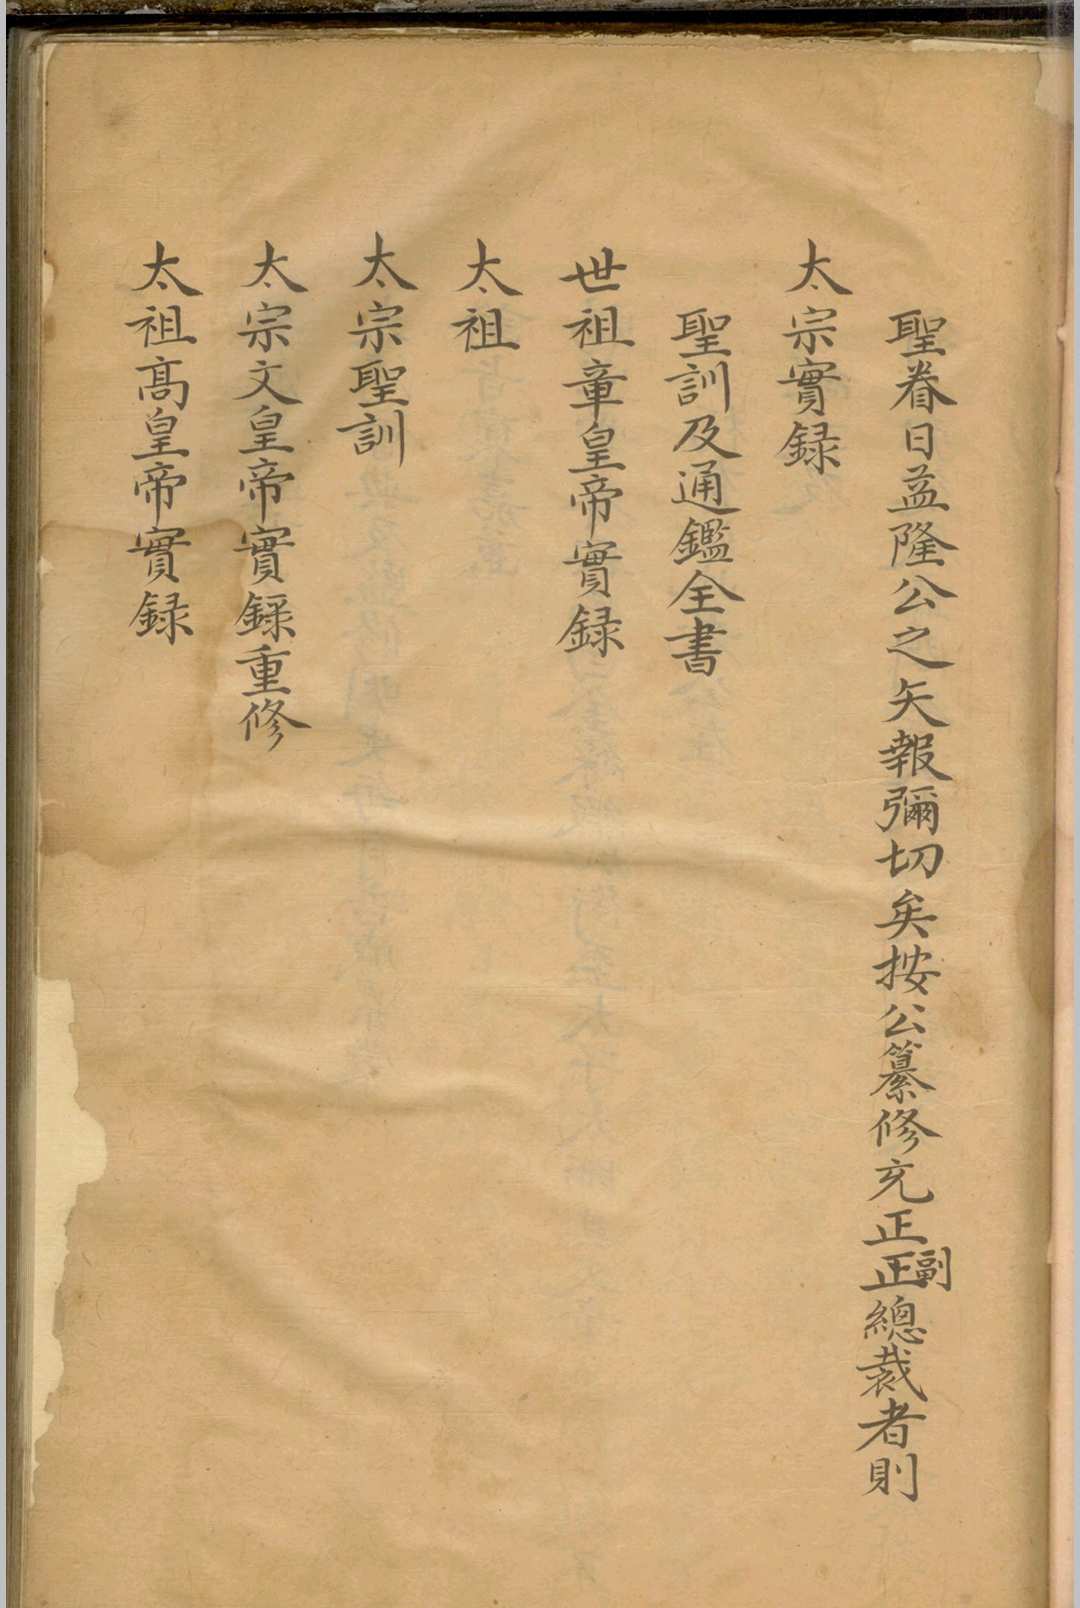 聖眷日益隆公之矢報彌切矣按公纂修充正正副總裁者則
太宗實録
聖訓及通鑑全書
世祖章皇帝實録
太祖
太宗聖訓
太宗文皇帝實録重修
太祖高皇帝實録